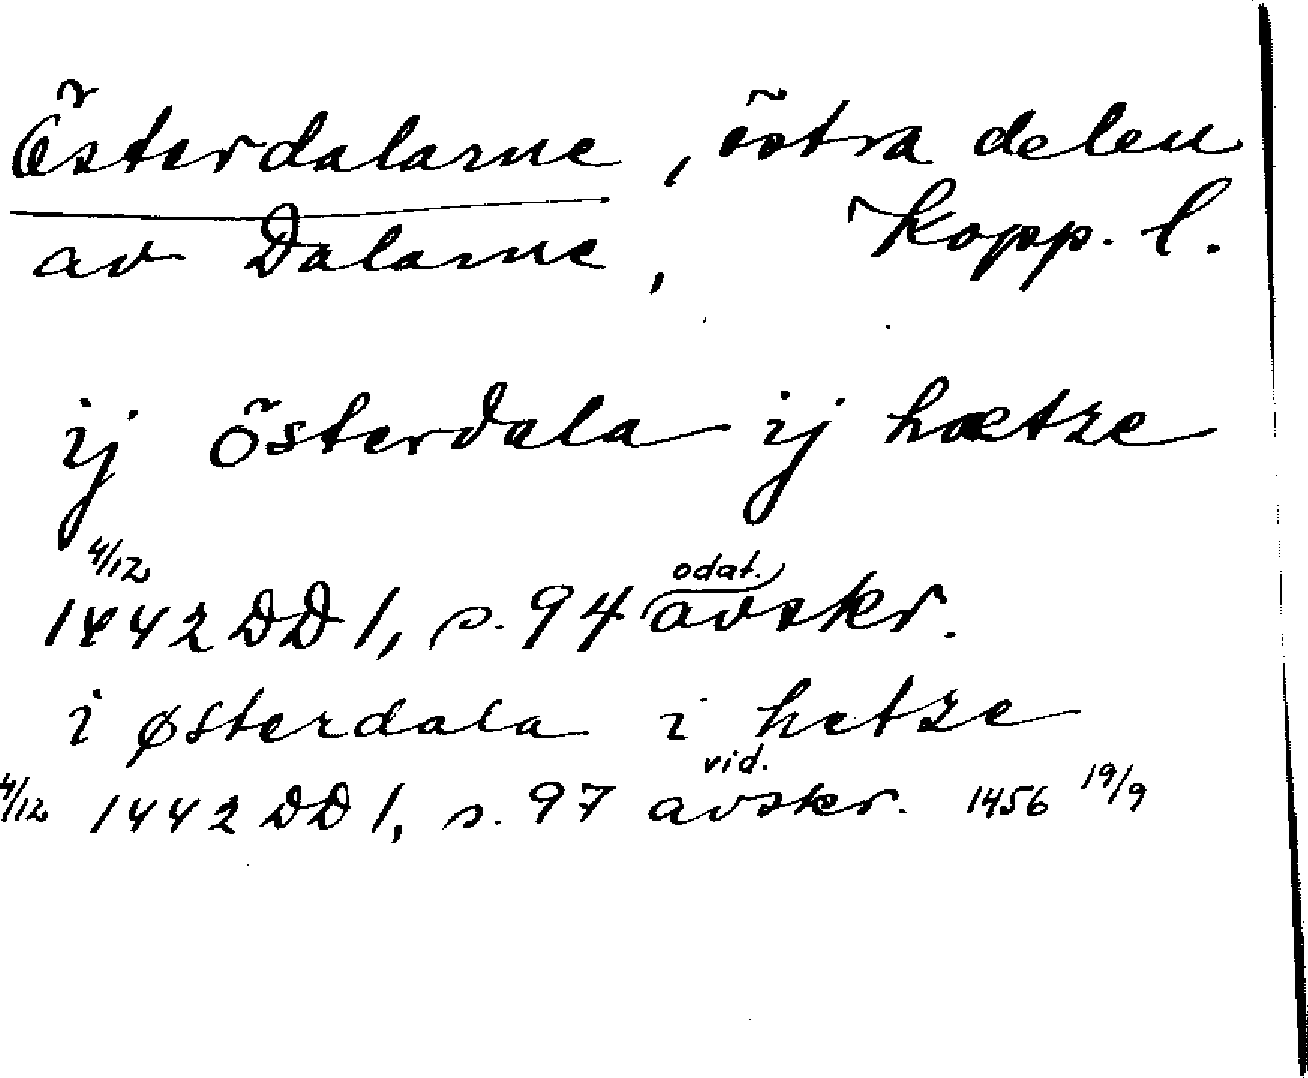 Österdalarne, östra delen
av Dalarne, Kopp. l.
ij österdala ij hætze
4/12
1442 DD 1, s. 94 odat. avskr.
i østerdala i hetze
4/12 1442 DD 1, s. 97 vid. avskr. 1456 19/9